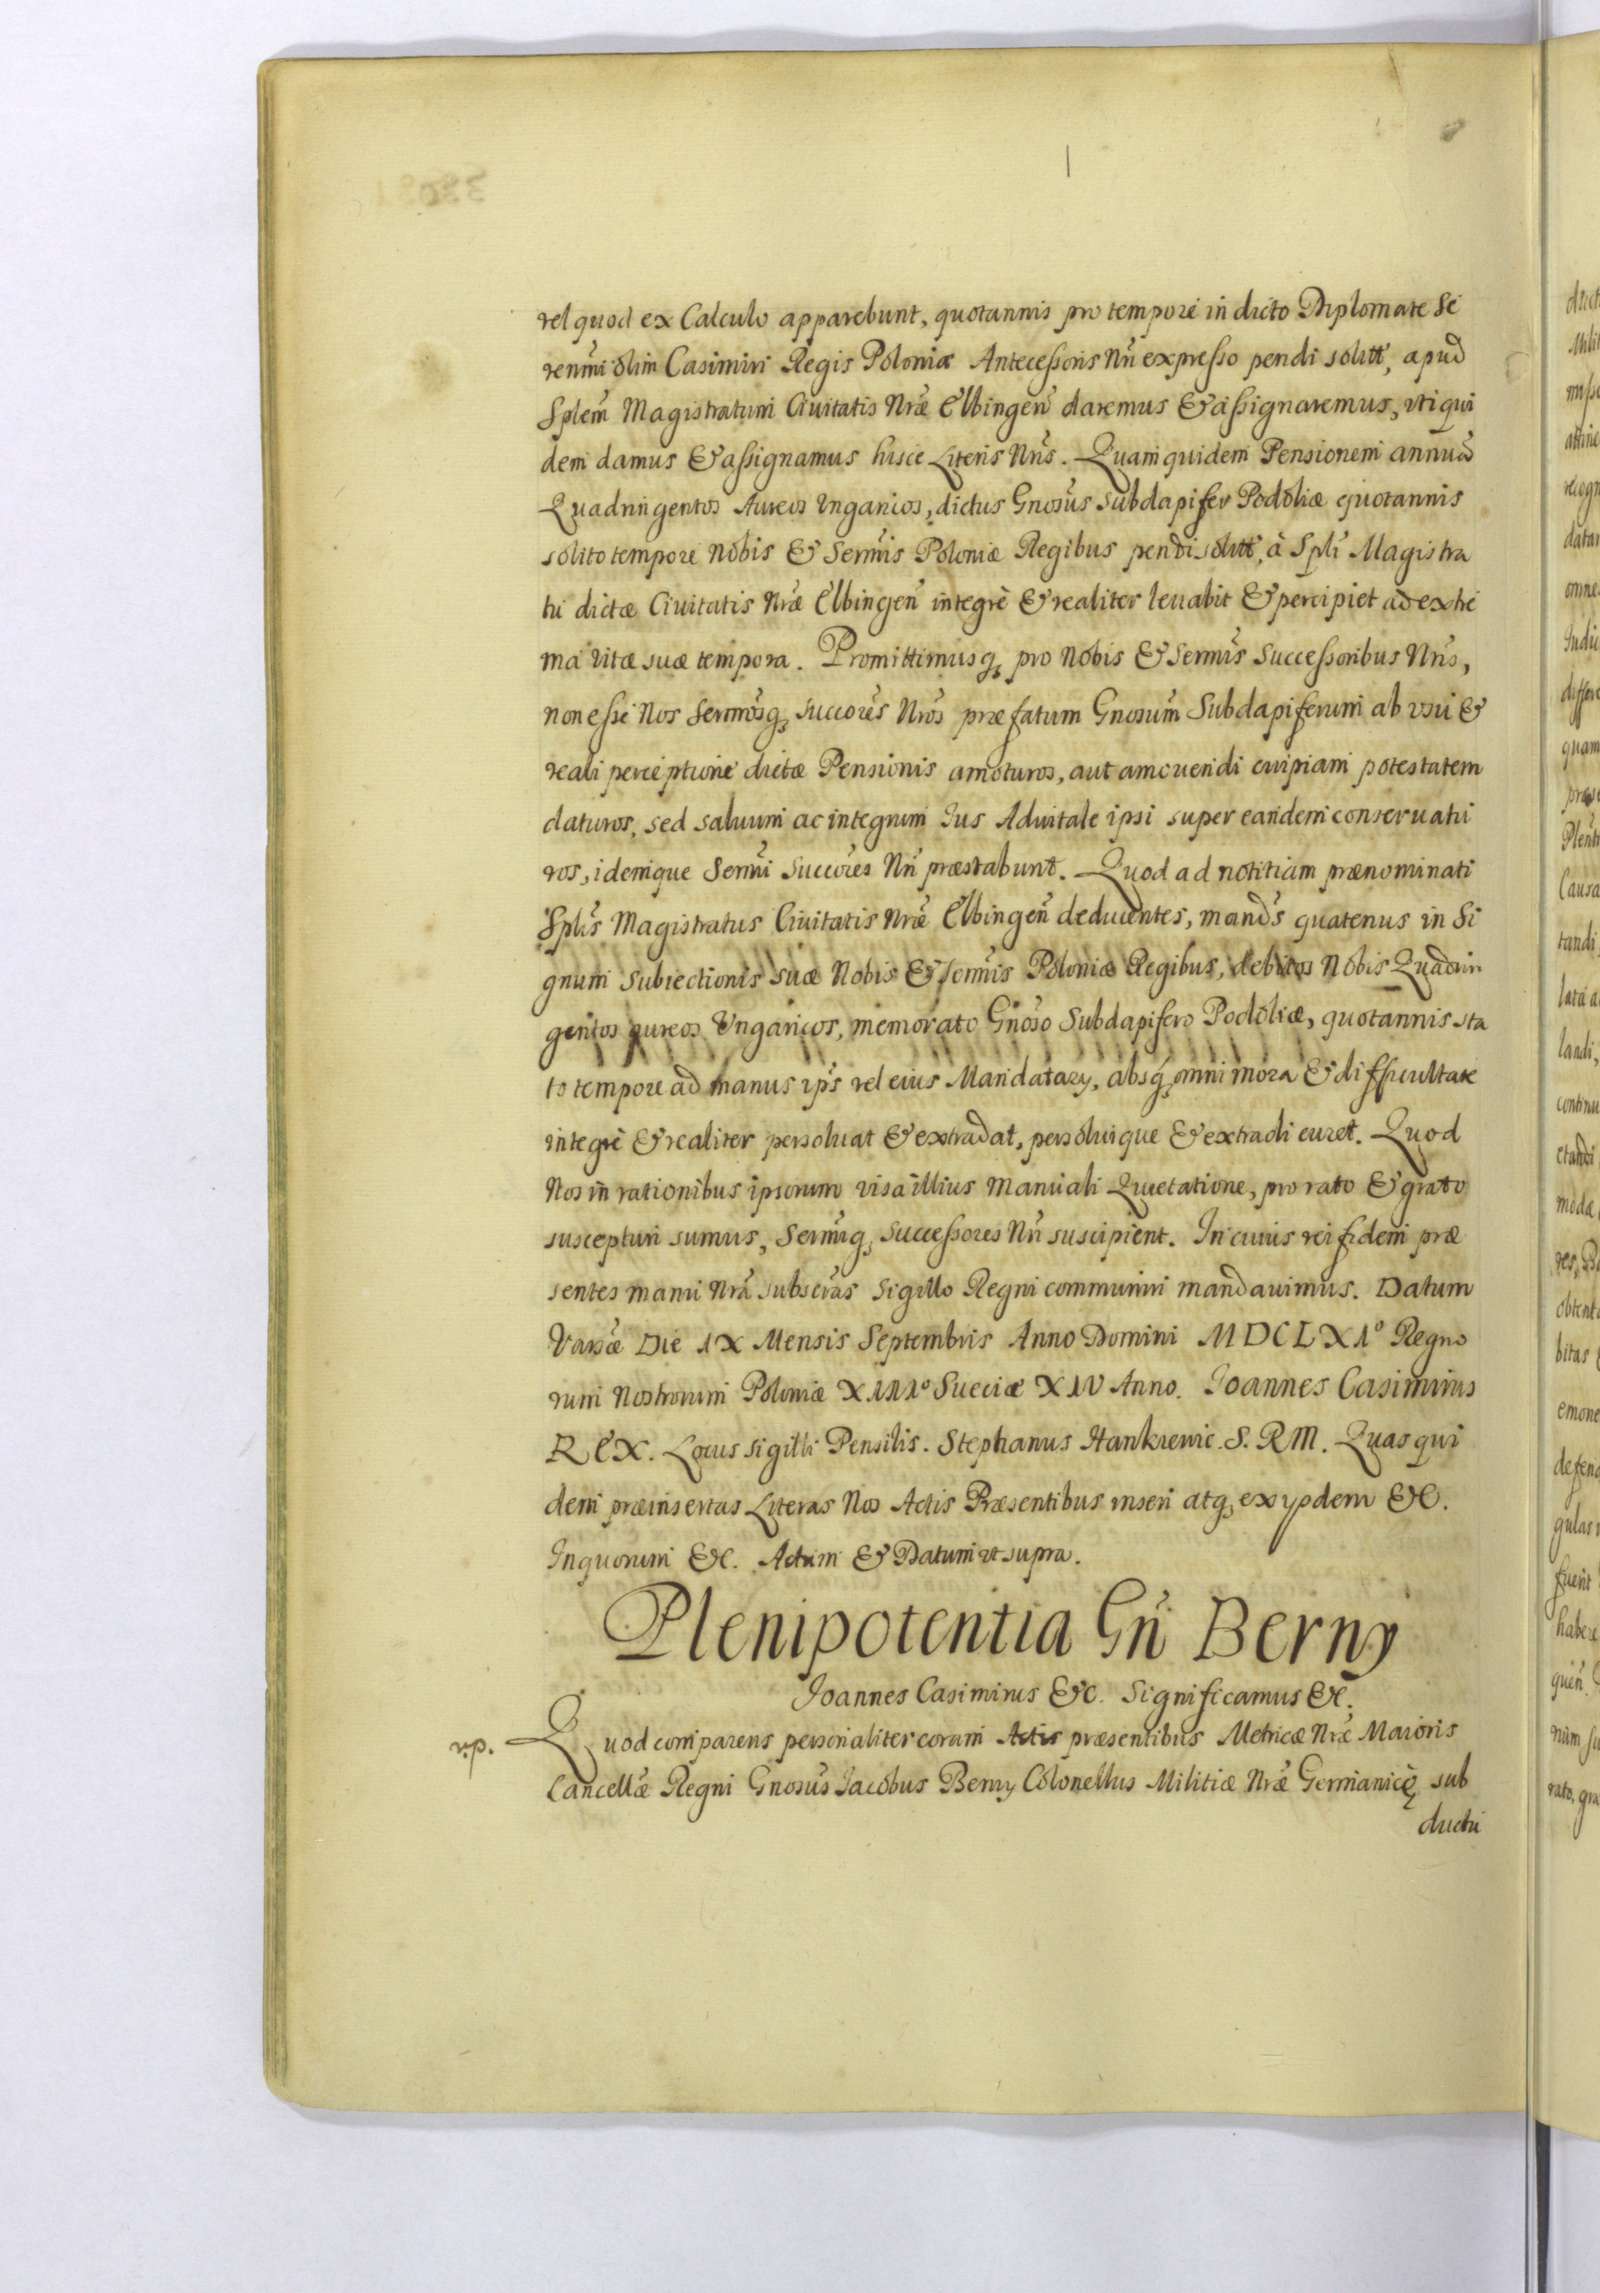 vel quod ex Calculo apparebunt, quotannis pro tempore in dicto Diplomate Se
renm̃i olim Casimiri Regis Poloniæ Antecessoris Nr̃i expresso pendi solitt, apud
Splem̃ Magistratum Ciuitatis Nræ̃ Elbingeñ daremus & assignaremus, vti qui
dem damus & assignamus hisce Literis Nr̃is. Quam quidem Pensionem annuã
Quadringentos Aureos Vngaricos, dictus Gnosũs Subdapifer Podoliæ quotannis
solito tempore nobis & Serm̃is Poloniæ Regibus pendi solitt, à Spli Magistra
tu dictæ Ciuitatis Nræ̃ Elbingeñ integrè & realiter leuabit & percipiet ad extre
ma vitæ suæ tempora. Promittimusq; pro Nobis & Serm̃is Successoribus Nr̃is,
non esse Nos Serm̃osq; succorẽs Nrõs præfatum Gnosum̃ Subdapiferum ab vsu &
reali perceptione dictæ Pensionis amoturos, aut amouendi cuipiam potestatem
daturos, sed saluum ac integrum Ius Aduitale ipsi super eandem conseruatu
ros, idemque Serm̃i Succorẽs Nr̃i præstabunt. Quod ad notitiam prænominati
Splĩs Magistratus Ciuitatis Nræ̃ Elbingeñ deducentes, mand̃s quatenus in Si
gnum subiectionis suæ Nobis & Serm̃is Poloniæ Regibus, debitos Nobis Quadrin
gentos aureos Vngaricos, memorato Gnoso Subdapifero Podoliæ, quotannis sta
to tempore ad manus ips̃ vel eius Mandatary, absq; omni mora & difficultate
integrè & realiter persoluat & extradat, persoluique & extradi curet. Quod
Nos in rationibus ipsorum visa illius manuali Quietatione, pro rato & grato
suscepturi sumus, Serm̃iq; Successores Nr̃i suscipient. In cuius rei fidem præ
sentes manu Nrã subscrãs Sigillo Regni communiri mandauimus. Datum
Varsæ̃ Die IX Mensis Septembris Anno Domini MDCLXI° Regno
rum Nostrorum Poloniæ XIII° Sueciæ XIV Anno. Joannes Casimirus
REX. Locus sigilli Pensilis. Stephanus Hankiewic. S. RM. Quas qui
dem præinsertas Literas Nos Actis Præsentibus inseri atq; ex ysdem &c.
In quorum &c. Actum & Datum vt supra.
Plenipotentia Gñi Berny
Joannes Casimirus &c. Significamus &c.
r.p. Quod comparens personaliter coram Actis præsentibus Metricæ Nræ̃ Maioris
Cancellæ̃ Regni Gnosũs Jacobus Berny Colonellus Militiæ Nræ̃ Germanicę sub
ductu